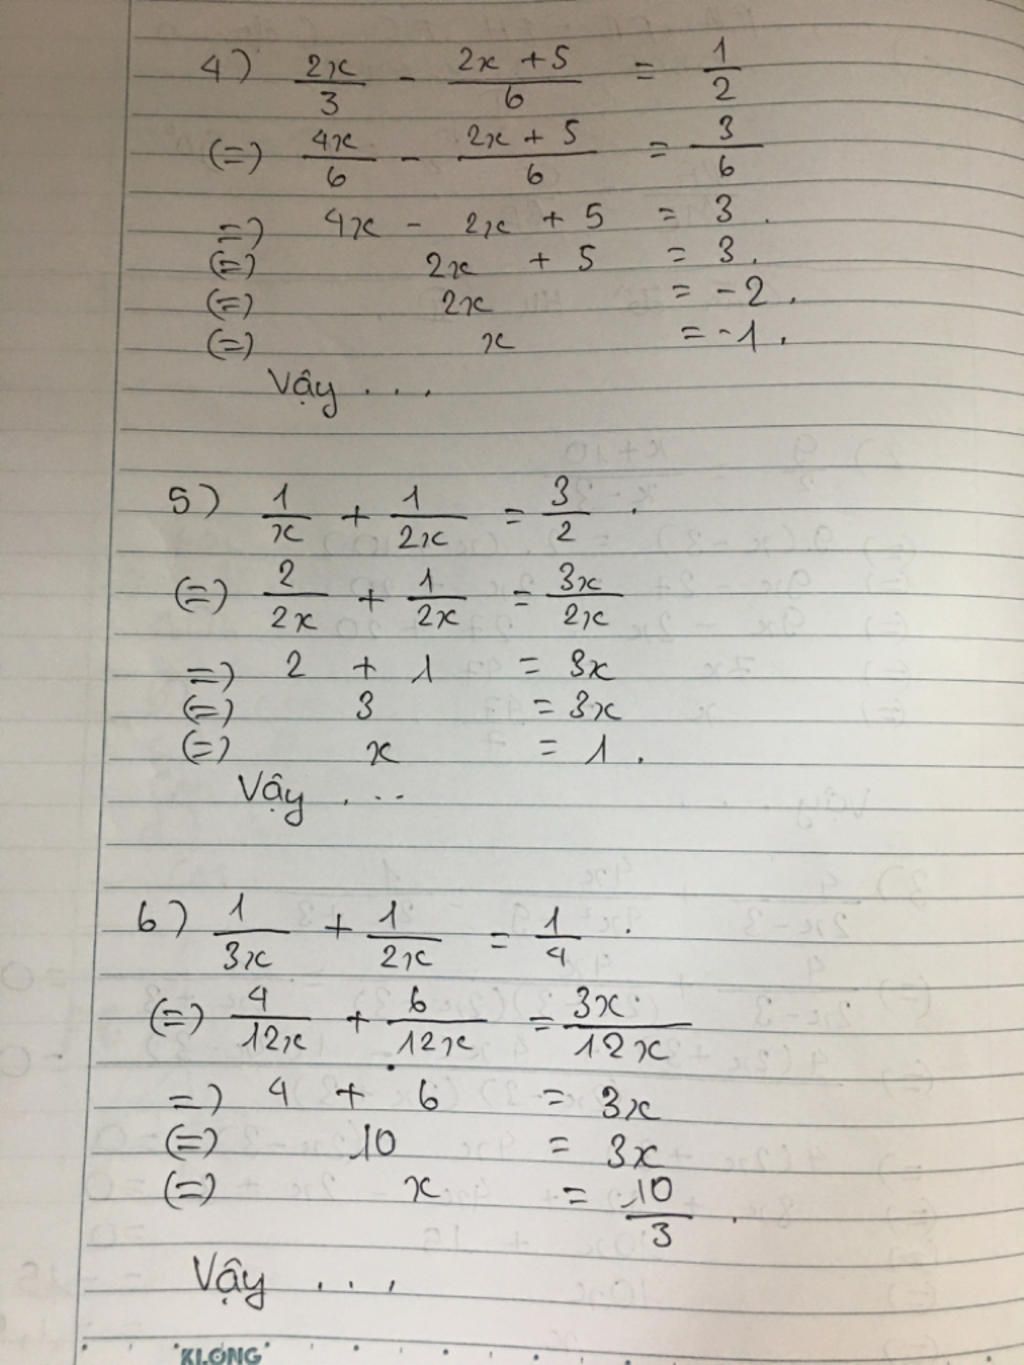 4) 2x/3 - (2x + 5)/6 = 1/2
(=) 4x/6 - (2x + 5)/6 = 3/6
=) 4x - 2x + 5 = 3.
(=) 2x + 5 = 3.
(=) 2x = -2.
(=) x = -1.
Vậy ...
5) 1/x + 1/2x = 3/2.
(=) 2/2x + 1/2x = 3x/2x
=) 2 + 1 = 3x
(=) 3 = 3x
(=) x = 1.
Vậy ...
6) 1/3x + 1/2x = 1/4.
(=) 4/12x + 6/12x = 3x/12x
=) 4 + 6 = 3x
(=) 10 = 3x
(=) x = 10/3.
Vậy ...
KLONG